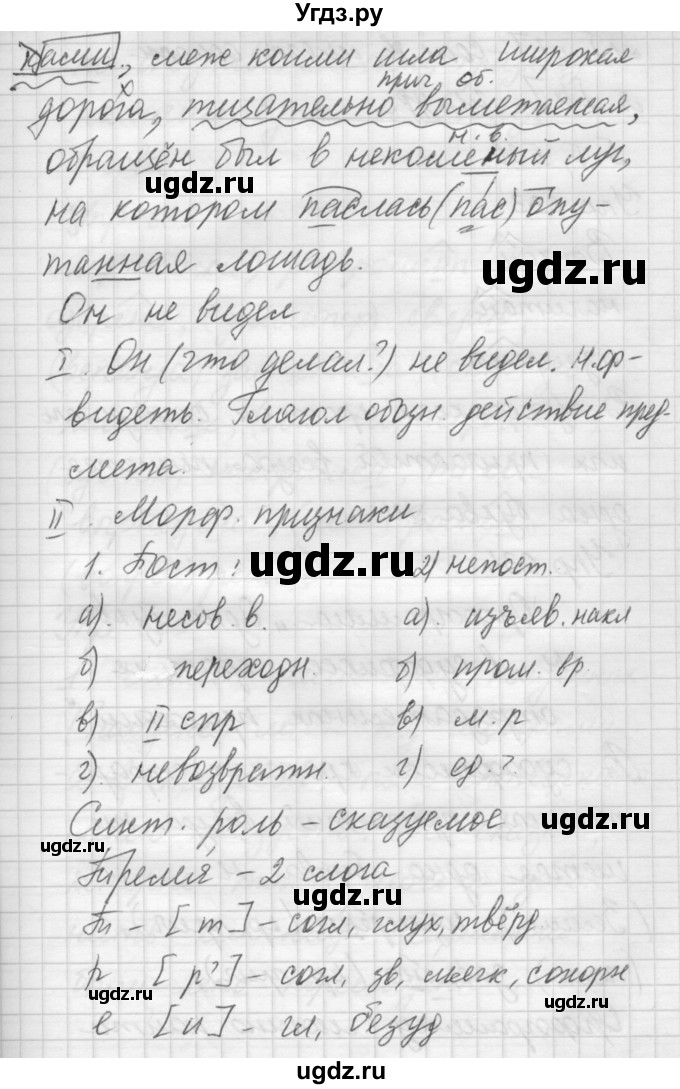 Угдз.ру
ками, меж коими шла широкая
прич. об.
дорога, тщательно выметаемая,
н. в.
обращён был в некошеный луг,
на котором паслась (пас) опу-
танная лошадь.
Он не видел
I. Он (что делал?) не видел. Н.ф-
видеть. Глагол обозн. действие пред-
мета.
II. Морф. признаки
1. Пост: 2) непост.
а). несов. в. а). изъяв. накл
б) переходн. б) прош. вр.
в) II спр в) м. р
г). невозвратн. г) ед. ?
Синт. роль - сказуемое
- 2 слога
Т - [т] - согл, глух, твёрд
р [р'] - согл, зв, мягк, сонорн
е [и] - гл, безуд
ugdz.ru
ugdz.ru
ugdz.ru
ugdz.ru
ugdz.ru
ugdz.ru
ugdz.ru
ugdz.ru
ugdz.ru
ugdz.ru
ugdz.ru
ugdz.ru
ugdz.ru